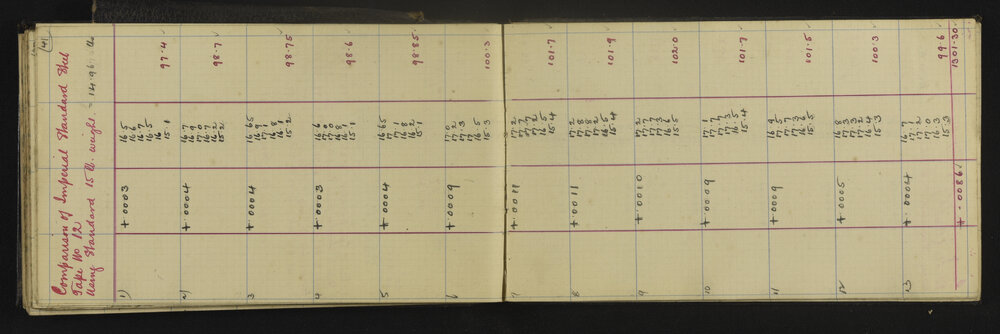 (41)
Comparison of Imperial Standard Steel
Tape No 12
Using Standard 15 lb. weight = 14.96 lb
1) +.0003 16.5 97.4 ✓
16.6
16.7
16.5
16
15.1
2) +.0004 16.7 98.7 ✓
16.9
17.0
16.7
16.2
15.2
3 +.0004 16.65 98.75 ✓
16.9
17.1
16.8
16.1
15.2
4 +.0003 16.6 98.6 ✓
17.0
17.0
16.8
16.1
15.1
5 +.0004 16.65 98.85 ✓
17
17.1
16.8
16.2
15.1
6 +.0009 17.0 100.3 ✓
17.2
17.3
17
16.5
15.3
7 +.0011 17.2 101.7 ✓
17.7
17.7
17.2
16.5
15.4
8 +.0011 17.2 101.9 ✓
17.8
17.8
17.2
16.5
15.4
9 +.0010 17.2 102.0 ✓
17.7
17.7
17.3
16.6
15.5
10 +.0009 17.1 101.7 ✓
17.7
17.7
17.3
16.5
15.4
11 +.0009 16.9 101.5 ✓
17.5
17.7
17.3
16.6
15.5
12 +.0005 16.8 100.3 ✓
17.3
17.3
17.2
16.4
15.3
13 +.0004 16.7 99.6 ✓
17.2
17.2
17.0
16.3
15.3
+.0086 ✓ 1301.30 ✓